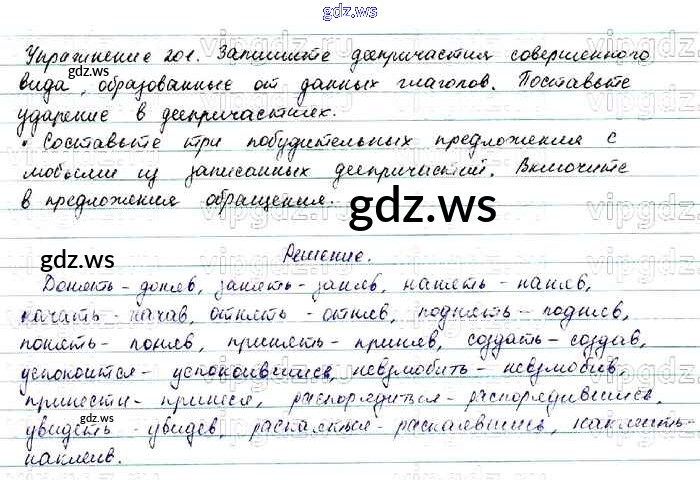 gdz.ws
Упражнение 201. Запишите деепричастия совершенного
вида, образованные от данных глаголов. Поставьте
gdz.ws
ударение в деепричастиях.
• Составьте три побудительных предложения с
любыми из записанных деепричастий. Включите
в предложения обращения.
gdz.ws
gdz.ws
Решение.
Донять - доняв, занять - заняв, нанять - наняв,
начать - начав, отнять - отняв, поднять - подняв,
понять - поняв, принять - приняв, создать - создав,
успокоится - успокоившись, невзлюбить - невзлюбив,
принести - принеся, распорядиться - распорядившись,
gdz.ws
увидеть - увидев, раскаяться - раскаявшись, наклеить -
наклеив.